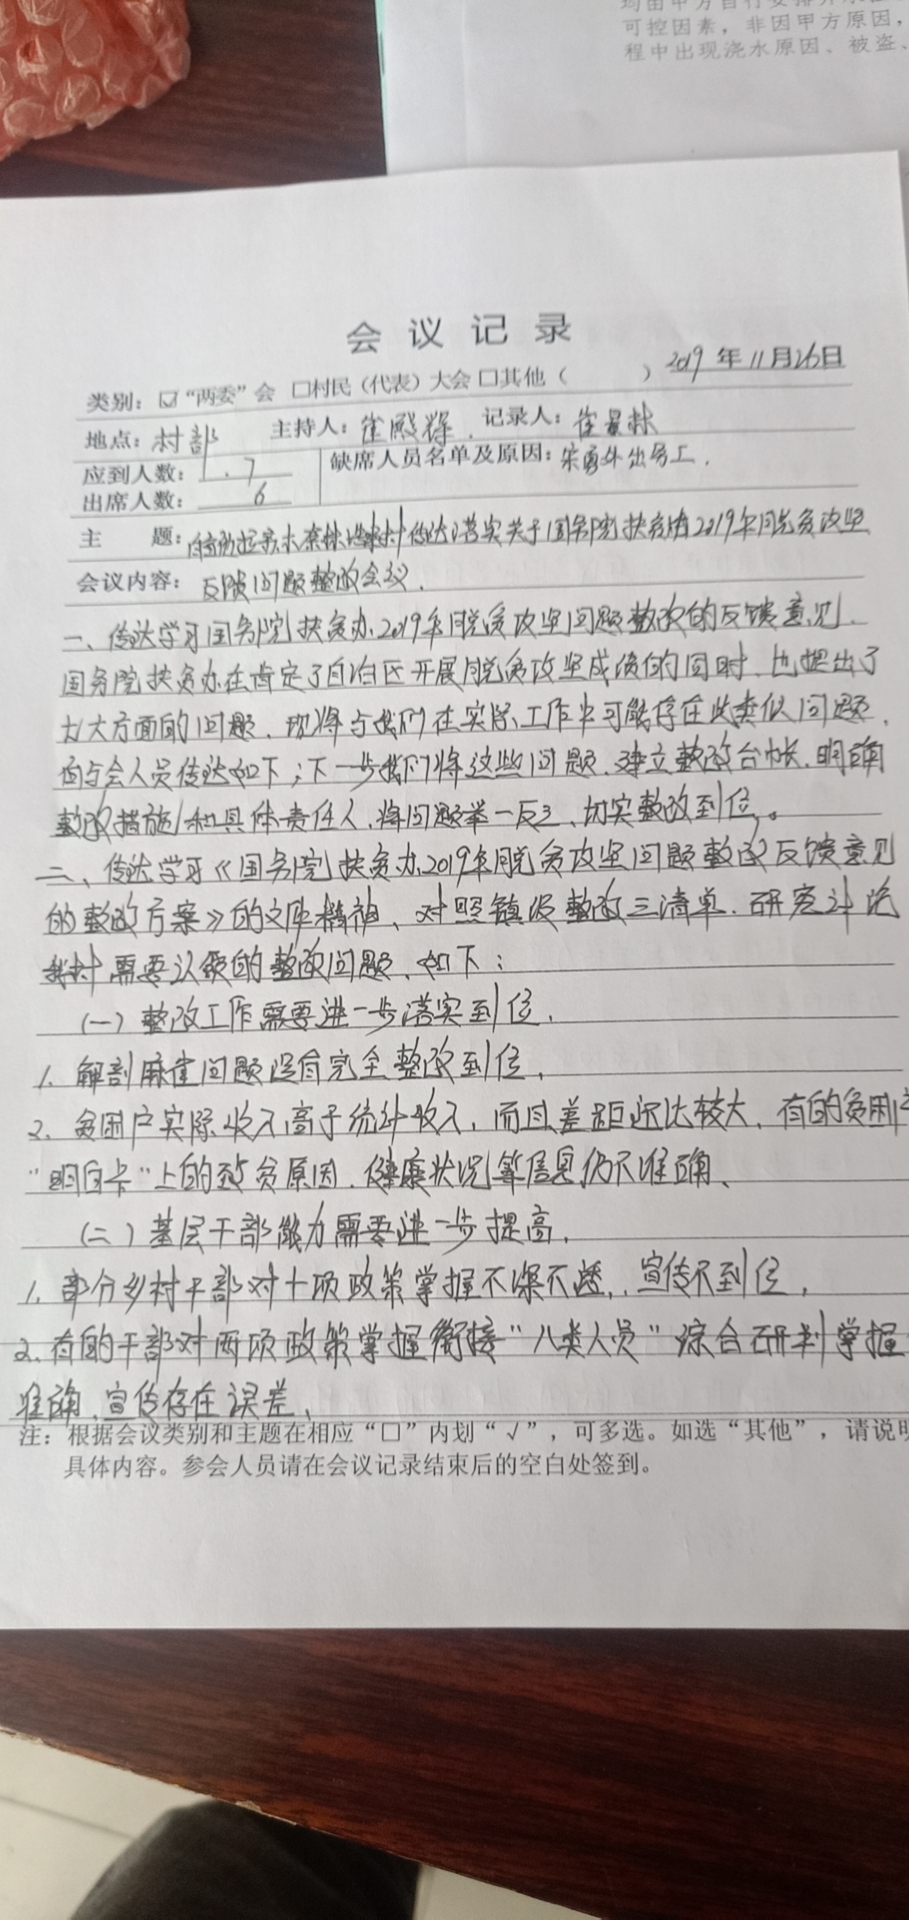 均由甲方自行安排
可控因素，非因甲方原因，
程中出现浇水原因、被盗、
会议记录
2019年11月26日
类别：☑“两委”会 □村民（代表）大会 □其他（ ）
地点：村部 主持人：崔殿辉 记录人：崔景林
应到人数：7 缺席人员名单及原因：朱勇外出务工.
出席人数：6
主 题：传达落实关于国务院扶贫办2019年脱贫攻坚
会议内容：反馈问题整改会议.
一、传达学习国务院扶贫办2019年脱贫攻坚问题整改的反馈意见.
国务院扶贫办在肯定了自治区开展脱贫攻坚成绩的同时、也提出了
六大方面的问题、现将与我们在实际工作中可能存在此类似问题、
向与会人员传达如下；下一步我们将这些问题、建立整改台帐、明确
整改措施和具体责任人、将问题举一反三、切实整改到位。
二、传达学习《国务院扶贫办2019年脱贫攻坚问题整改反馈意见
的整改方案》的文件精神、对照镇级整改三清单、研究讨论
我村需要认领的整改问题、如下：
（一）整改工作需要进一步落实到位.
1、解剖麻雀问题没有完全整改到位、
2、贫困户实际收入高于统计收入、而且差距还比较大、有的贫困户
“明白卡”上的致贫原因、健康状况等信息仍不准确、
（二）基层干部能力需要进一步提高.
1、部分乡村干部对十项政策掌握不深不透、宣传不到位，
2、有的干部对两项政策掌握衔接“八类人员”综合研判掌握
准确、宣传存在误差、
注：根据会议类别和主题在相应“□”内划“√”，可多选。如选“其他”，请说明
具体内容。参会人员请在会议记录结束后的空白处签到。